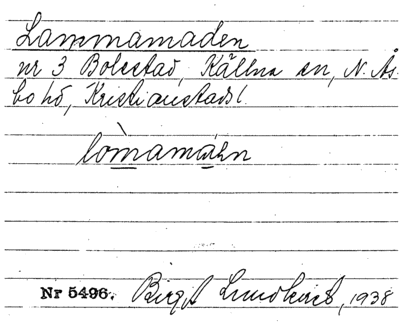 Lammamaden
nr 3 Bolestad, Källna sn, N. Ås-
bo hd, Kristianstads l.
lòmamáen
Nr 5496. Birgit Lundkvist, 1938